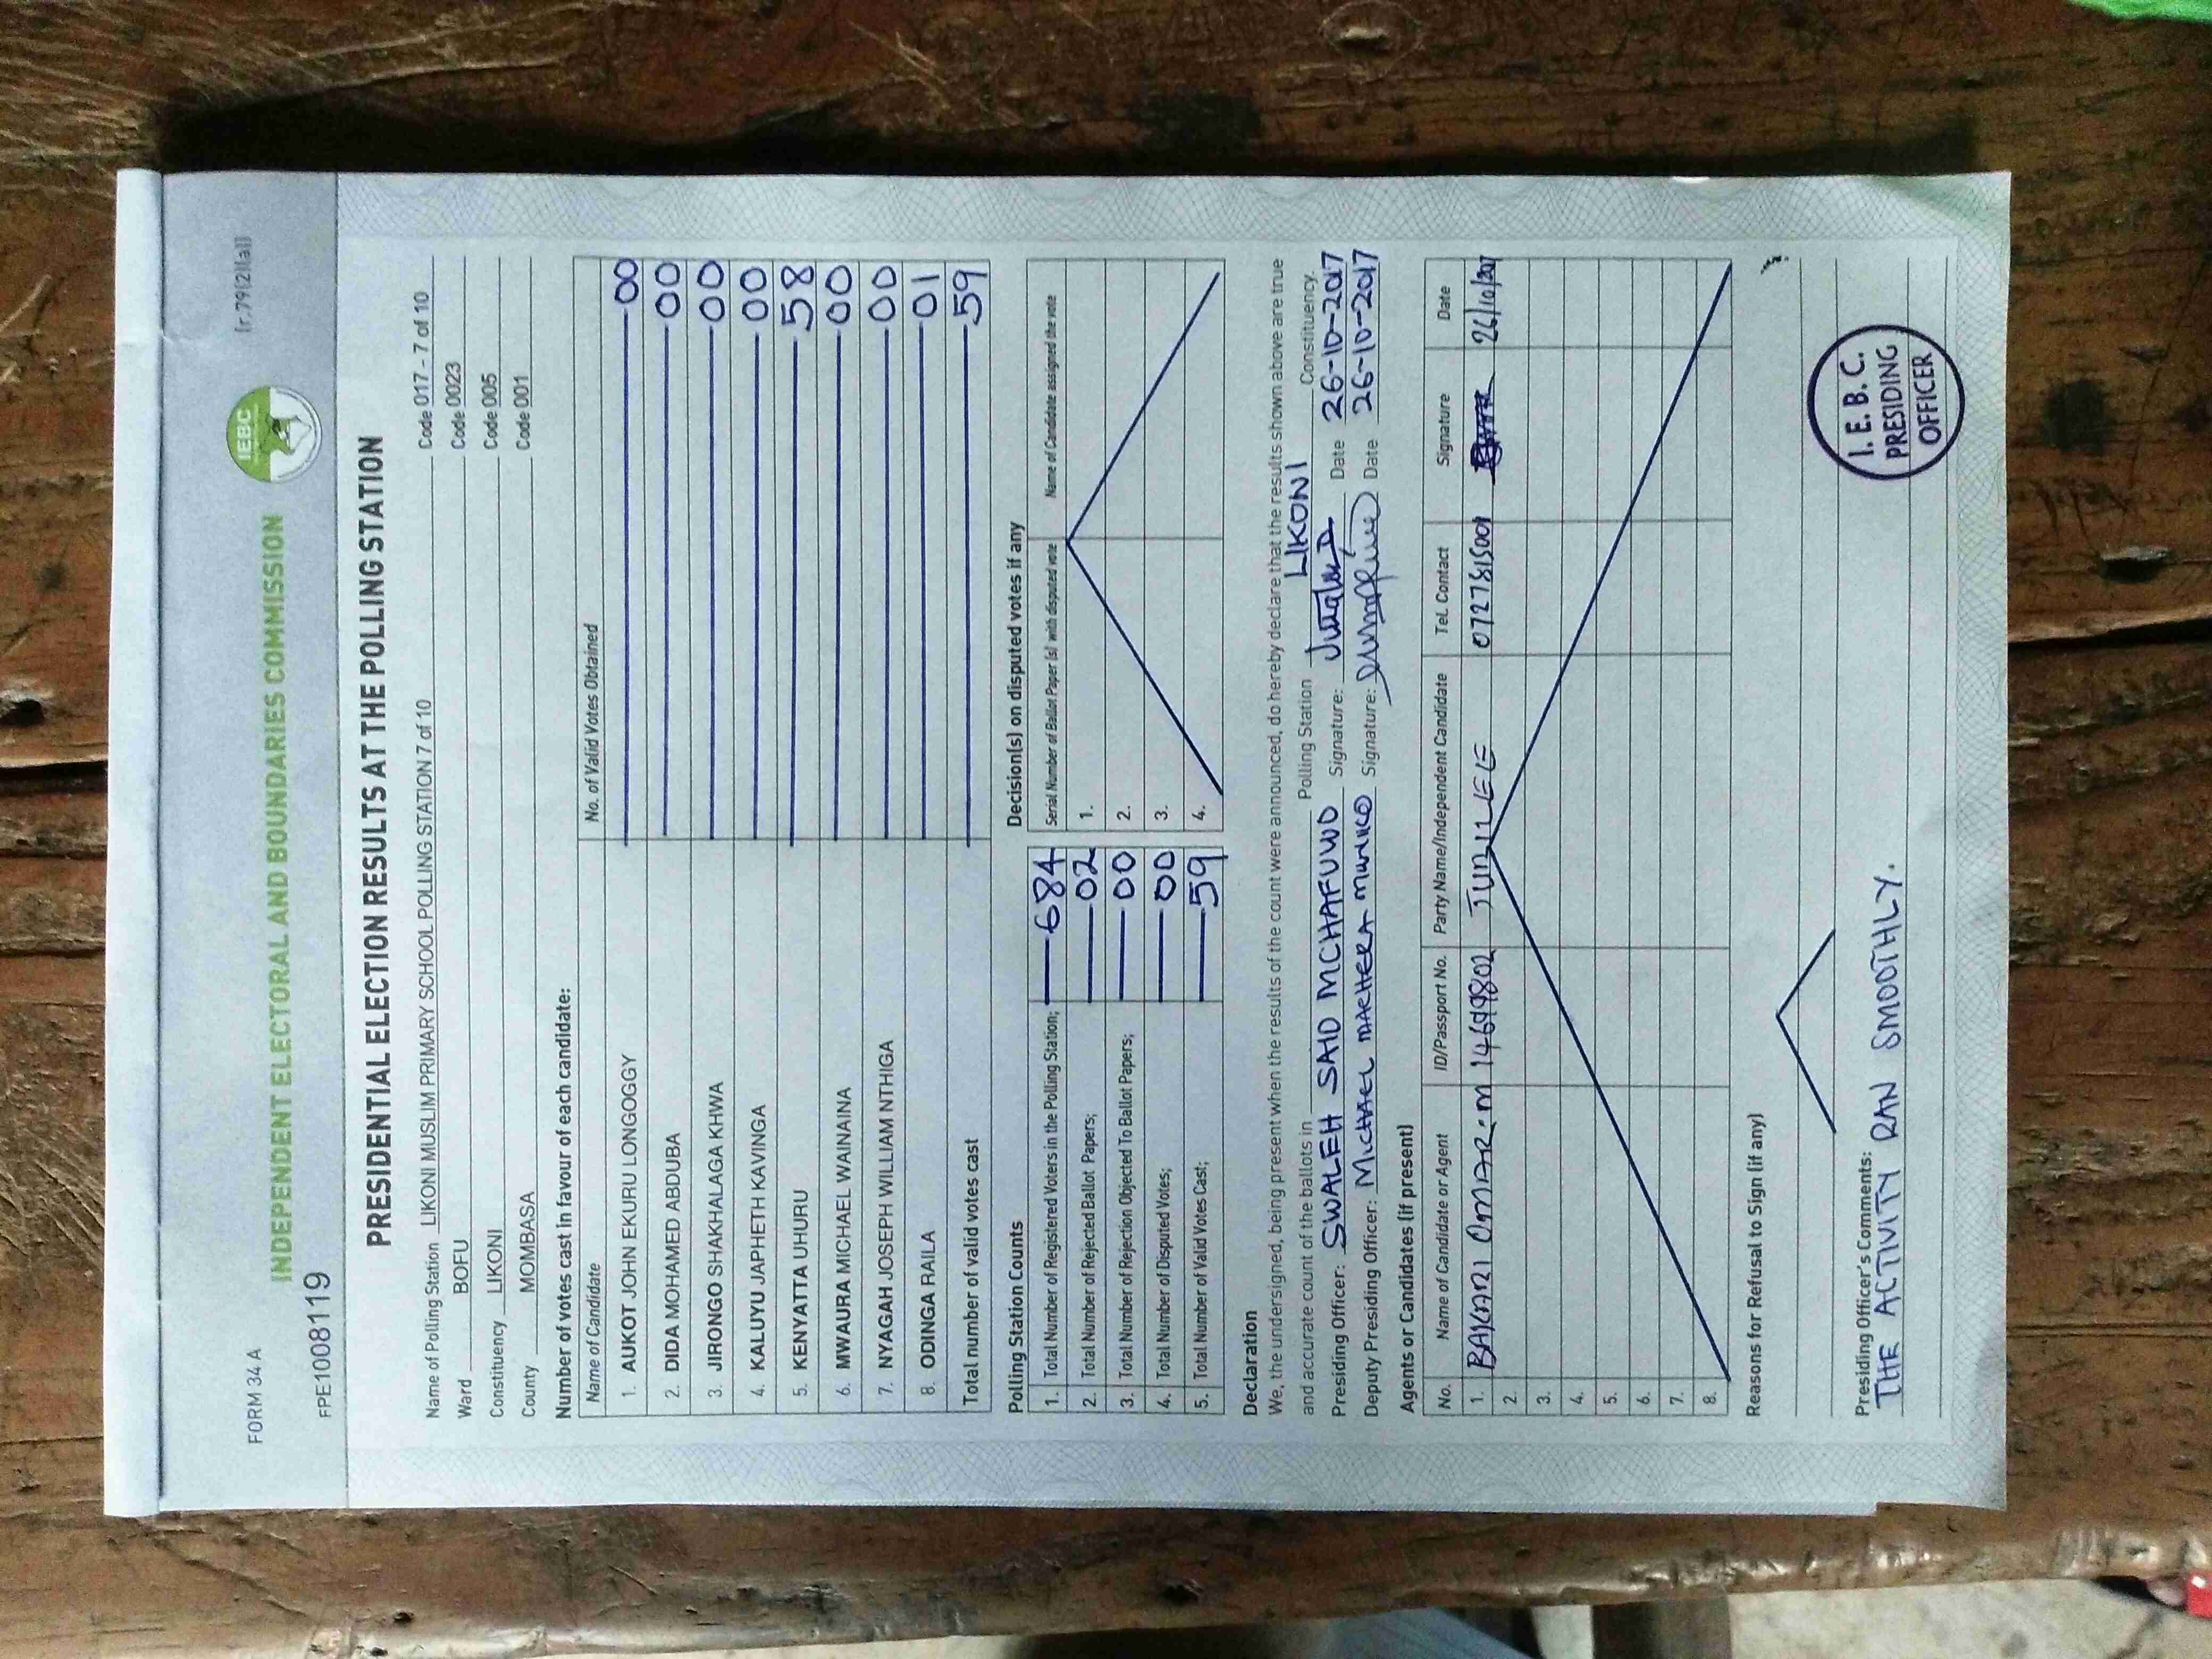 FORM 34 A
[r.79(2)(a)]
IEBC
INDEPENDENT ELECTORAL AND BOUNDARIES COMMISSION
FPE1008119
PRESIDENTIAL ELECTION RESULTS AT THE POLLING STATION
Name of Polling Station LIKONI MUSLIM PRIMARY SCHOOL POLLING STATION 7 of 10 Code 017 - 7 of 10
Ward BOFU Code 0023
Constituency LIKONI Code 005
County MOMBASA Code 001
Number of votes cast in favour of each candidate:
Name of Candidate No. of Valid Votes Obtained
1. AUKOT JOHN EKURU LONGOGGY 00
2. DIDA MOHAMED ABDUBA 00
3. JIRONGO SHAKHALAGA KHWA 00
4. KALUYU JAPHETH KAVINGA 00
5. KENYATTA UHURU 58
6. MWAURA MICHAEL WAINAINA 00
7. NYAGAH JOSEPH WILLIAM NTHIGA 00
8. ODINGA RAILA 01
Total number of valid votes cast 59
Polling Station Counts
1. Total Number of Registered Voters in the Polling Station; 684
2. Total Number of Rejected Ballot Papers; 02
3. Total Number of Rejection Objected To Ballot Papers; 00
4. Total Number of Disputed Votes; 00
5. Total Number of Valid Votes Cast; 59
Decision(s) on disputed votes if any
Serial Number of Ballot Paper (s) with disputed vote Name of Candidate assigned the vote
1.
2.
3.
4.
Declaration
We, the undersigned, being present when the results of the count were announced, do hereby declare that the results shown above are true
and accurate count of the ballots in Polling Station LIKONI Constituency.
Presiding Officer: SWALEH SAID MCHAFUWO Signature: Date 26-10-2017
Deputy Presiding Officer: MICHAEL Signature: Date 26-10-2017
Agents or Candidates (if present)
No. Name of Candidate or Agent ID/Passport No. Party Name/Independent Candidate Tel. Contact Signature Date
1. BAKARI OMAR M 14699802 JUBILEE 0727815001 26/10/2017
2.
3.
4.
5.
6.
7.
8.
Reasons for Refusal to Sign (if any)
Presiding Officer's Comments:
THE ACTIVITY RAN SMOOTHLY.
I. E. B. C.
PRESIDING
OFFICER